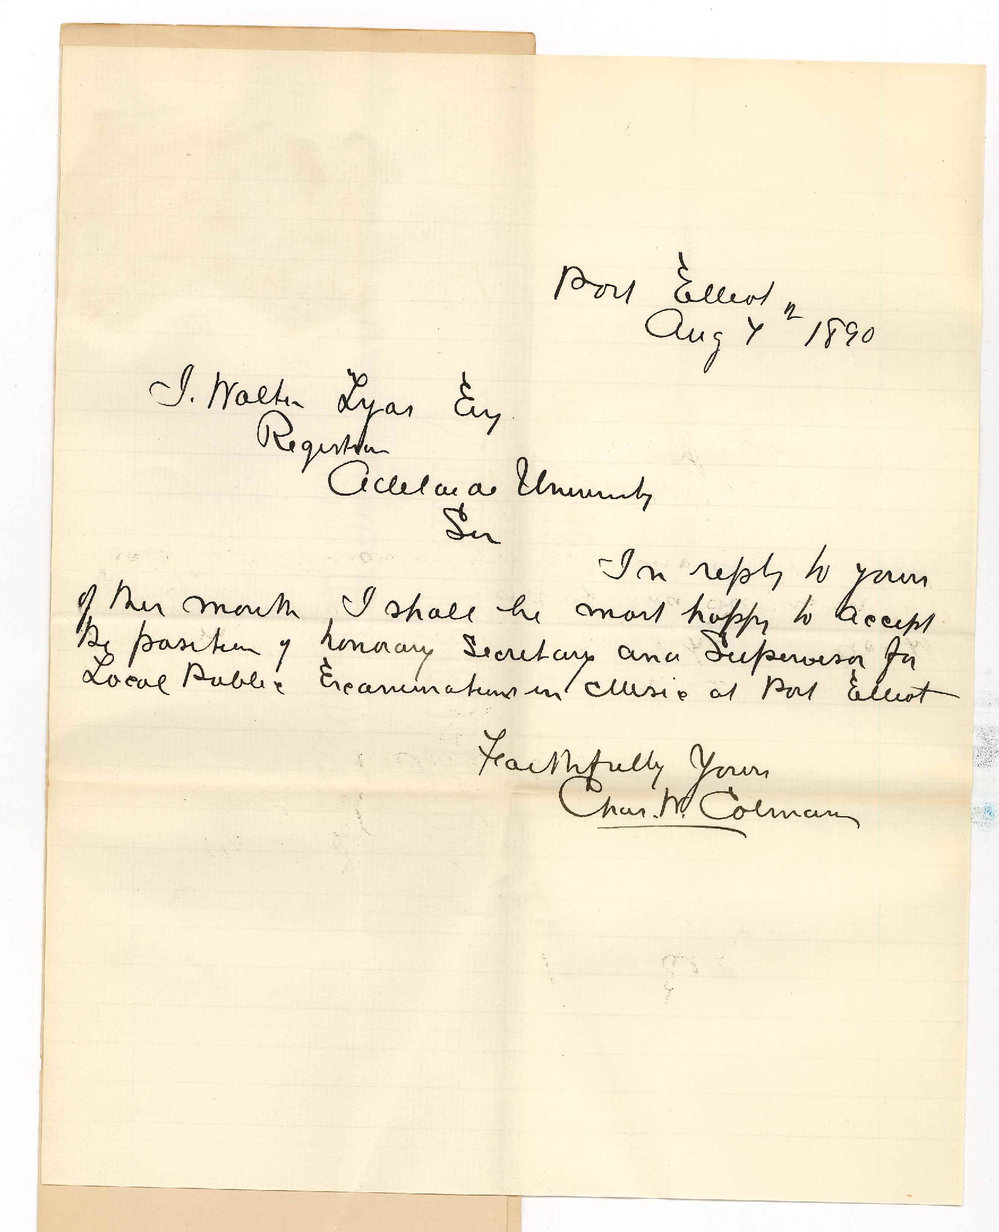 Port Elliot
Aug 7th 1890
J. Walter Tyas Esq
Registrar
Adelaide University
Sir
In reply to yours
of this month I shall be most happy to accept
the position of honorary Secretary and Supervisor for
Local Public Examinations in Music at Port Elliot
Faithfully Yours
Chas. W. Colman